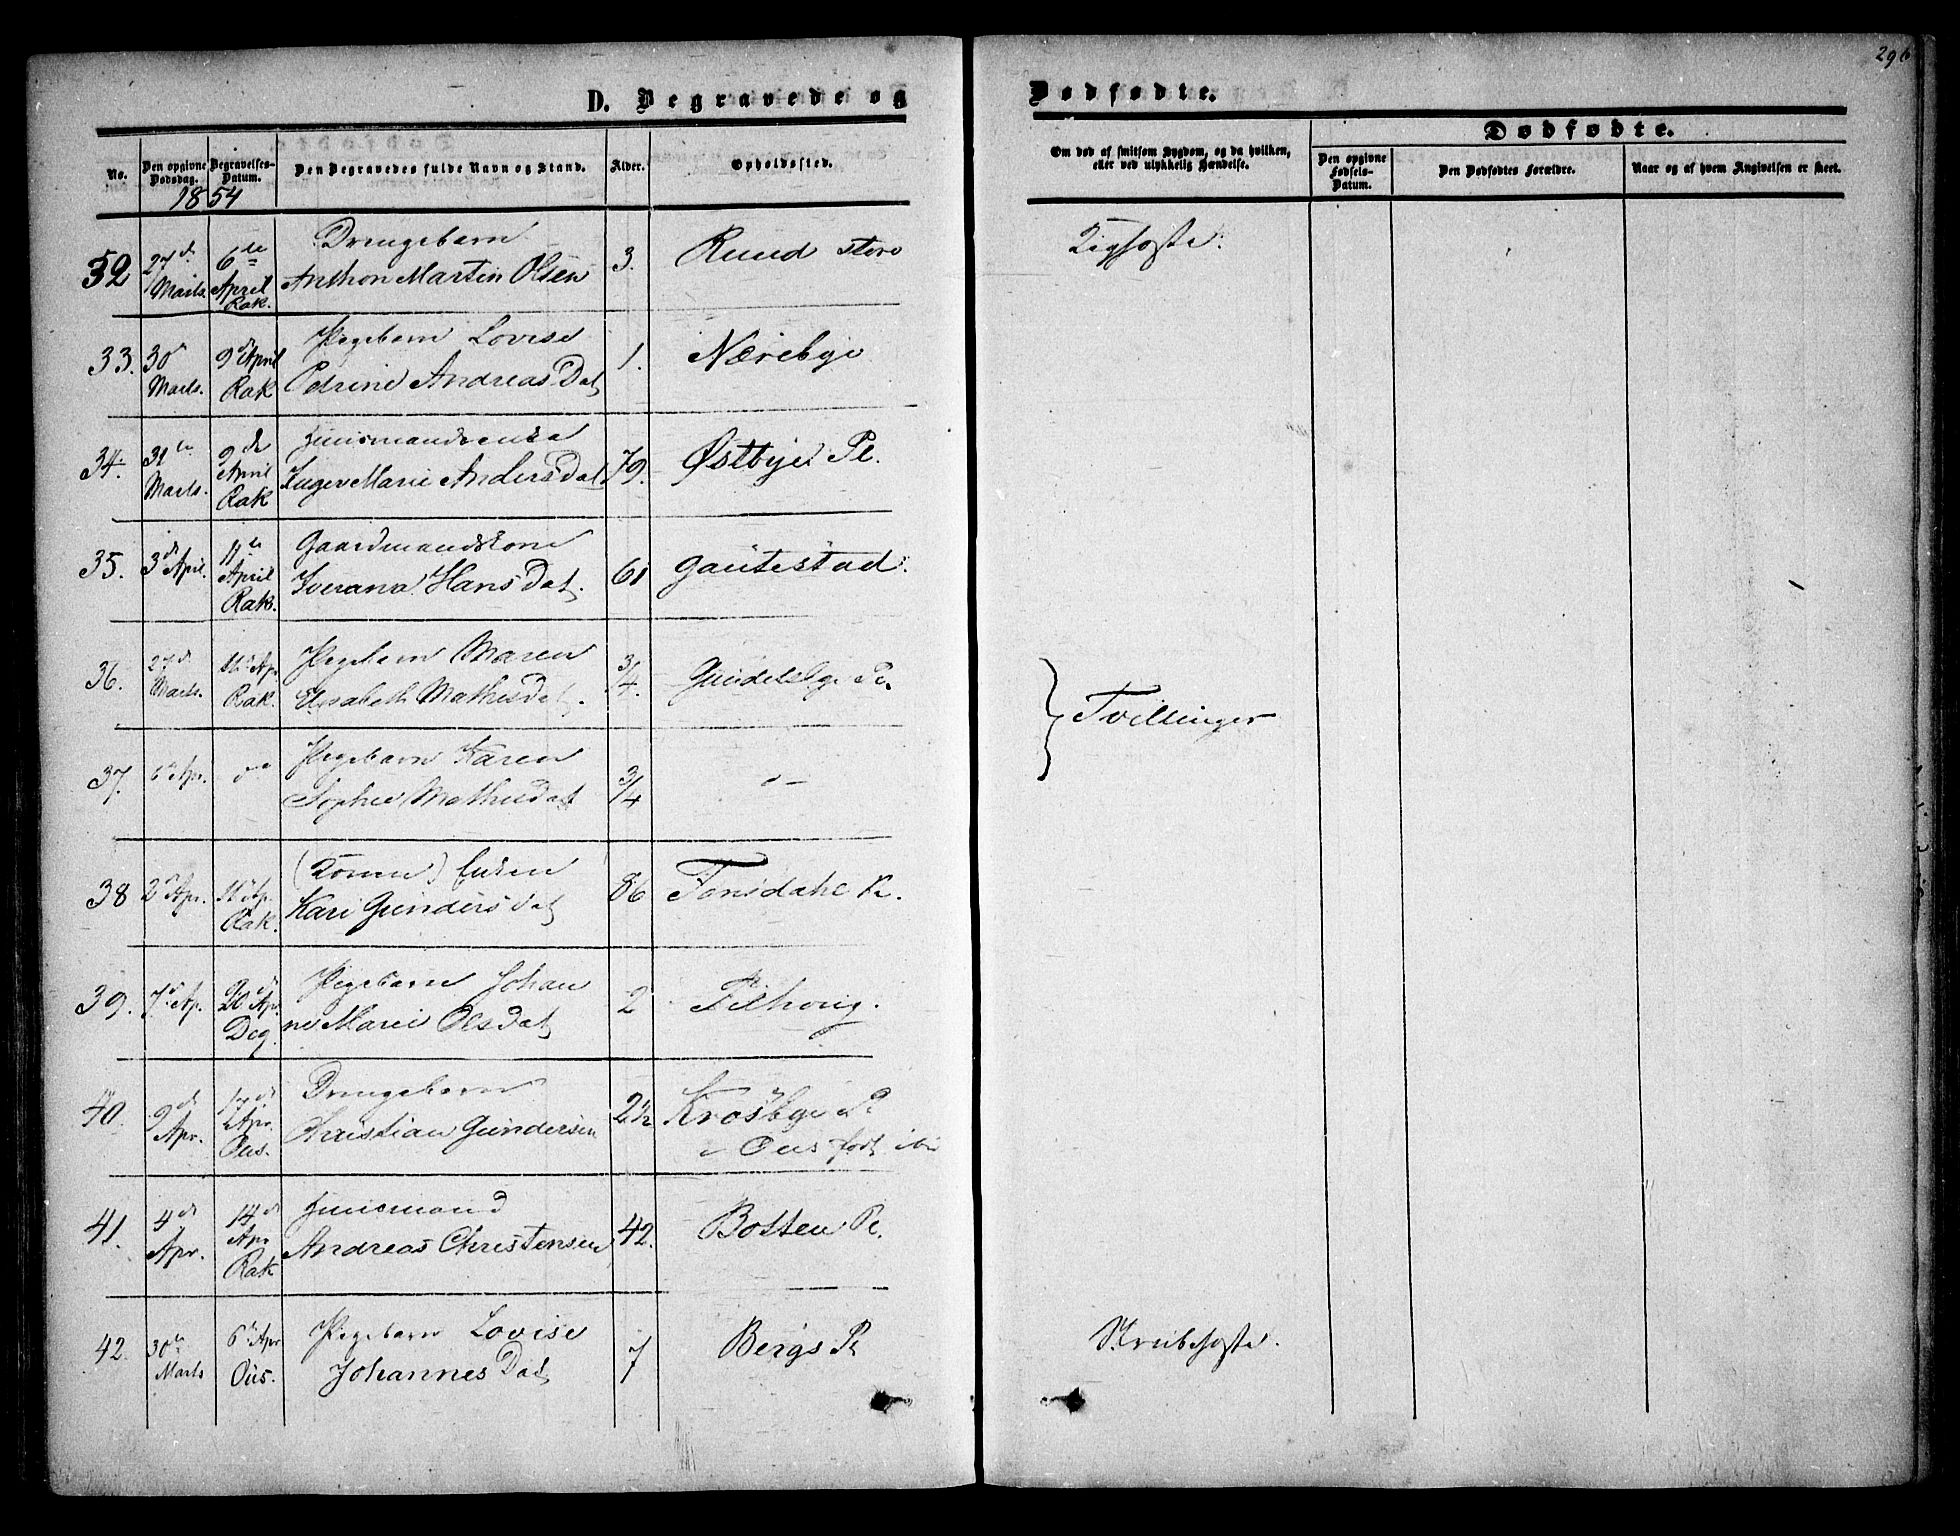 296
D. Begravede og
Dødfødte.
No.
Den opgivne Dødsdag.
Begravelses-Datum.
Den Begravedes fulde Navn og Stand.
Alder.
Opholdssted.
Om død af smitsom Sygdom, og da hvilken,
eller ved ulykkelig Hændelse.
Dødfødte.
Den opgivne Fødsels-Datum.
Den Dødfødtes Forældre.
Naar og af hvem Angivelsen er skeet.
1854
32
27d Marts.
6te April Rak.
Drengebarn
Anthon Martin Olsen
3.
Ruud store
Kighoste.
33.
30d Marts.
9d April Rak
Pigebarn Lovise
Petrine Andreas Dat
1.
Nærebye
34.
31te Marts.
9de April Rak
Huusmandsenke
Inger Marie Anders Dat
79.
Østbye Pl.
35.
3d April.
11te April Rak.
Gaardmandskone
Iverana Hans Dat.
61
Gautestad.
36.
27d Marts.
11te Ap. Rak.
Pigebarn Maren
Elisabeth Mathisdat.
3/4.
Pl.
37.
6te Apr.
Pigebarn Karen
Sophie Mathisdat
3/4
Tvillinger
38
2d Apr.
11te Ap. Rak.
Enken
Kari Gundersdat
86
39.
7d Ap.
20de Apr Deg.
Pigebarn Johan
ne Marie Olsdat
2
40.
9d Apr.
Apr. Ous.
Drengebarn
Christian Gundersen
2 1/2
Krosbye Pl
i Ous født ibi
41.
4de Apr.
14de Apr Rak
Huusmand
Andreas Christensen
42.
Botten Pl.
42.
30te Marts
6te Apr Ous.
Pigebarn Lovise
Johannes Dat
7
Bergs Pl
Strubehoste.